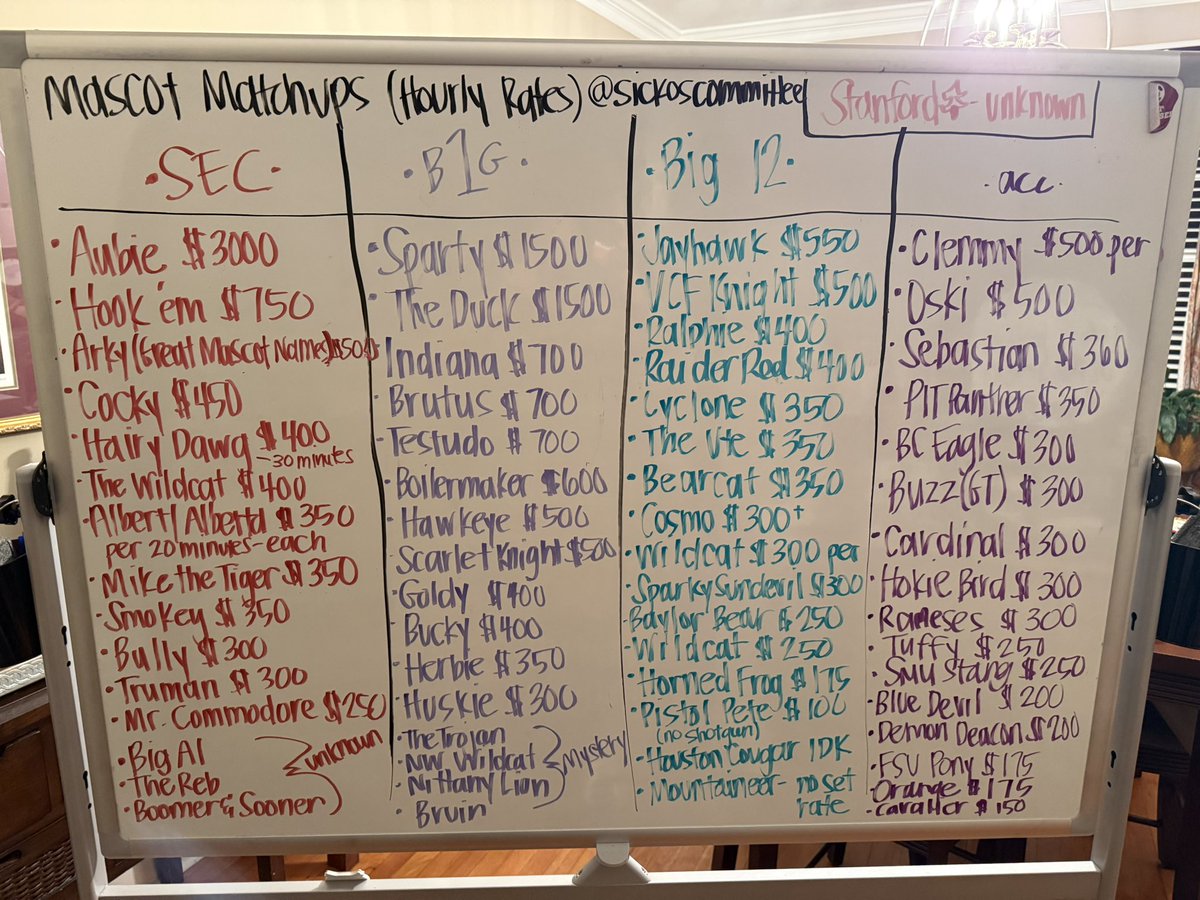 Mascot Matchups (Hourly Rates) @sickoscommittee
Stanford - unknown
·SEC·
·Aubie $3000
·Hook'em $750
·Arky (Great Mascot Names) $500
·Cocky $450
·Hairy Dawg $400
~30 minutes
·The Wildcat $400
·Albert/Alberta $350
per 20 minutes-each
·Mike the Tiger $350
·Smokey $350
·Bully $300
·Truman $300
·Mr. Commodore $250
·Big Al
·The Reb
·Boomer & Sooner
unknown
·B1G·
·Sparty $1500
·The Duck $1500
·Indiana $700
·Brutus $700
·Testudo $700
·Boilermaker $600
·Hawkeye $500
·Scarlet Knight $500
·Goldy $400
·Bucky $400
·Herbie $350
·Huskie $300
·The Trojan
·NW Wildcat
·Nittany Lion
·Bruin
Mystery
·Big 12·
·Jayhawk $550
·VCF Knight $500
·Ralphie $400
·Raider Red $400
·Cyclone $350
·The Vte $350
·Bearcat $350
·Cosmo $300+
·Wildcat $300 per
·Sparky Sundevil $300
·Baylor Bear $250
·Wildcat $250
·Horned Frog $175
·Pistol Pete $100
(no shotgun)
·Houston Cougar IDK
·Mountaineer- no set
rate
·acc·
·Clemmy $500 per
·Oski $500
·Sebastian $360
·PIT Panther $350
·BC Eagle $300
·Buzz (GT) $300
·Cardinal $300
·Hokie Bird $300
·Rameses $300
·Tuffy $250
·SMU Stang $250
·Blue Devil $200
·Demon Deacon $200
·FSU Pony $175
·Orange $175
·CavaHor $150